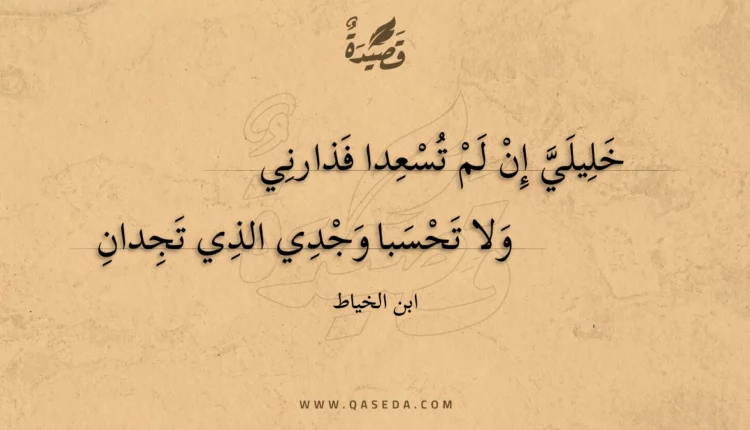 قَصِيْدَةٌ
خَلِيلَيَّ إِنْ لَمْ تُسْعِدا فَذارنِي
وَلا تَحْسَبا وَجْدِي الذِي تَجِدانِ
ابن الخياط
WWW.QASEDA.COM